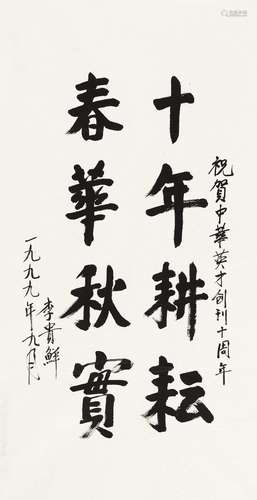 祝賀中華英才创刊十周年
十年耕耘
春華秋實
一九九九年九月
李貴鮮